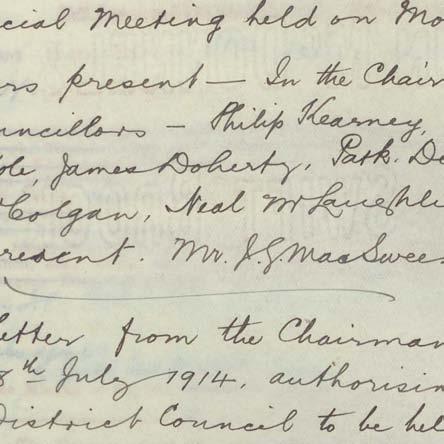 cial Meeting held on Mo
rs present — In the Chair
uncillors — Philip Kearney,
ole, James Doherty, Patk. Do
Colgan, Neal McLaughli
resent. Mr. J. G. MacSwee
etter from the Chairman
8th July 1914, authorisin
District Council to be hel